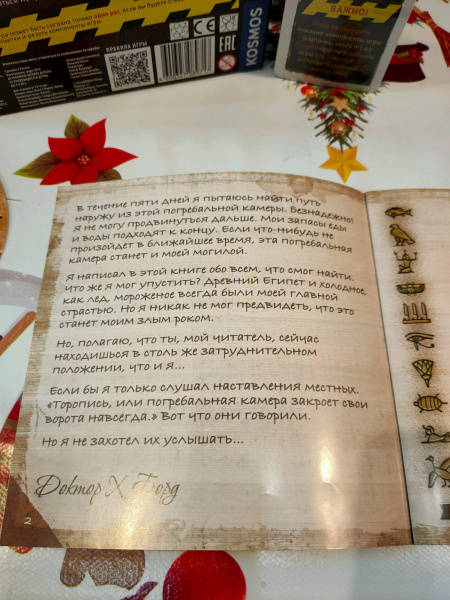 гра может быть сыграна только один раз, если вы будете
и резать компоненты игры.
ПРАВИЛА ИГРЫ
CE
EAC
KOSMOS
ВАЖНО!
В течение пяти дней я пытаюсь найти путь
наружу из этой погребальной камеры. Безнадежно!
Я не могу продвинуться дальше. Мои запасы еды
и воды подходят к концу. Если что-нибудь не
произойдет в ближайшее время, эта погребальная
камера станет и моей могилой.
Я написал в этой книге обо всем, что смог найти.
Что же я мог упустить? Древний Египет и холодное,
как лед, мороженое всегда были моей главной
страстью. Но я никак не мог предвидеть, что это
станет моим злым роком.
Но, полагаю, что ты, мой читатель, сейчас
находишься в столь же затруднительном
положении, что и я...
Если бы я только слушал наставления местных.
«Торопись, или погребальная камера закроет свои
ворота навсегда.» Вот что они говорили.
Но я не захотел их услышать...
Доктор Х. Форд
2